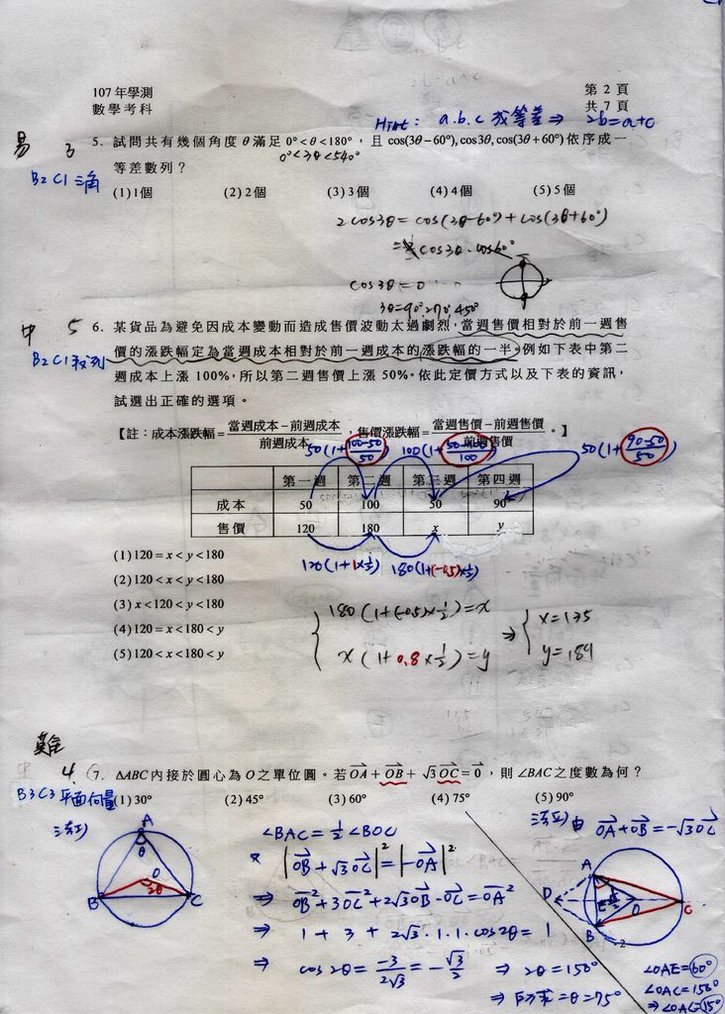 107年學測
數學考科
第 2 頁
共 7 頁
Hint: a.b.c 成等差 ⇒ 2b=a+c
易 3 5. 試問共有幾個角度 θ 滿足 0°<θ<180°，且 cos(3θ−60°),cos3θ,cos(3θ+60°) 依序成一
0°<3θ<540°
等差數列？
B2C1三角
(1)1個 (2)2個 (3)3個 (4)4個 (5)5個
2cos3θ = cos(3θ-60°)+cos(3θ+60°)
cos3θ·cos60°
cos3θ=0
3θ=90°,270°,450°
中 5 6. 某貨品為避免因成本變動而造成售價波動太過劇烈，當週售價相對於前一週售
B2C1數列 價的漲跌幅定為當週成本相對於前一週成本的漲跌幅的一半。例如下表中第二
週成本上漲 100%，所以第二週售價上漲 50%。依此定價方式以及下表的資訊，
試選出正確的選項。
【註：成本漲跌幅=(當週成本−前週成本)/前週成本，售價漲跌幅=(當週售價−前週售價)/前週售價。】
50(1+(100-50)/50) 100(1+(50-100)/100) 50(1+(90-50)/50)
第一週 第二週 第三週 第四週
成本 50 100 50 90
售價 120 180 x y
120(1+1×1/2) 180(1+(-0.5)×1/2)
(1)120=x<y<180
(2)120<x<y<180
(3)x<120<y<180
(4)120=x<180<y
(5)120<x<180<y
180(1+(-0.5)×1/2)=x ⇒ x=135
x(1+0.8×1/2)=y y=189
難
4 7. ΔABC內接於圓心為O之單位圓。若 OA + OB + √3 OC = 0，則∠BAC之度數為何？
B3C3平面向量 (1)30° (2)45° (3)60° (4)75° (5)90°
法I)
A
θ
O
2θ
B C
∠BAC = 1/2 ∠BOC
|OB+√3OC|²=|-OA|²
⇒ OB²+3OC²+2√3OB·OC=OA²
⇒ 1+3+2√3·1·1·cos2θ=1
⇒ cos2θ = -3/2√3 = -√3/2 ⇒ 2θ=150°
⇒ 所求=θ=75°
法II) 由 OA+OB=-√3OC
A
D E O C
B
∠OAE=60°
∠OAC=15°